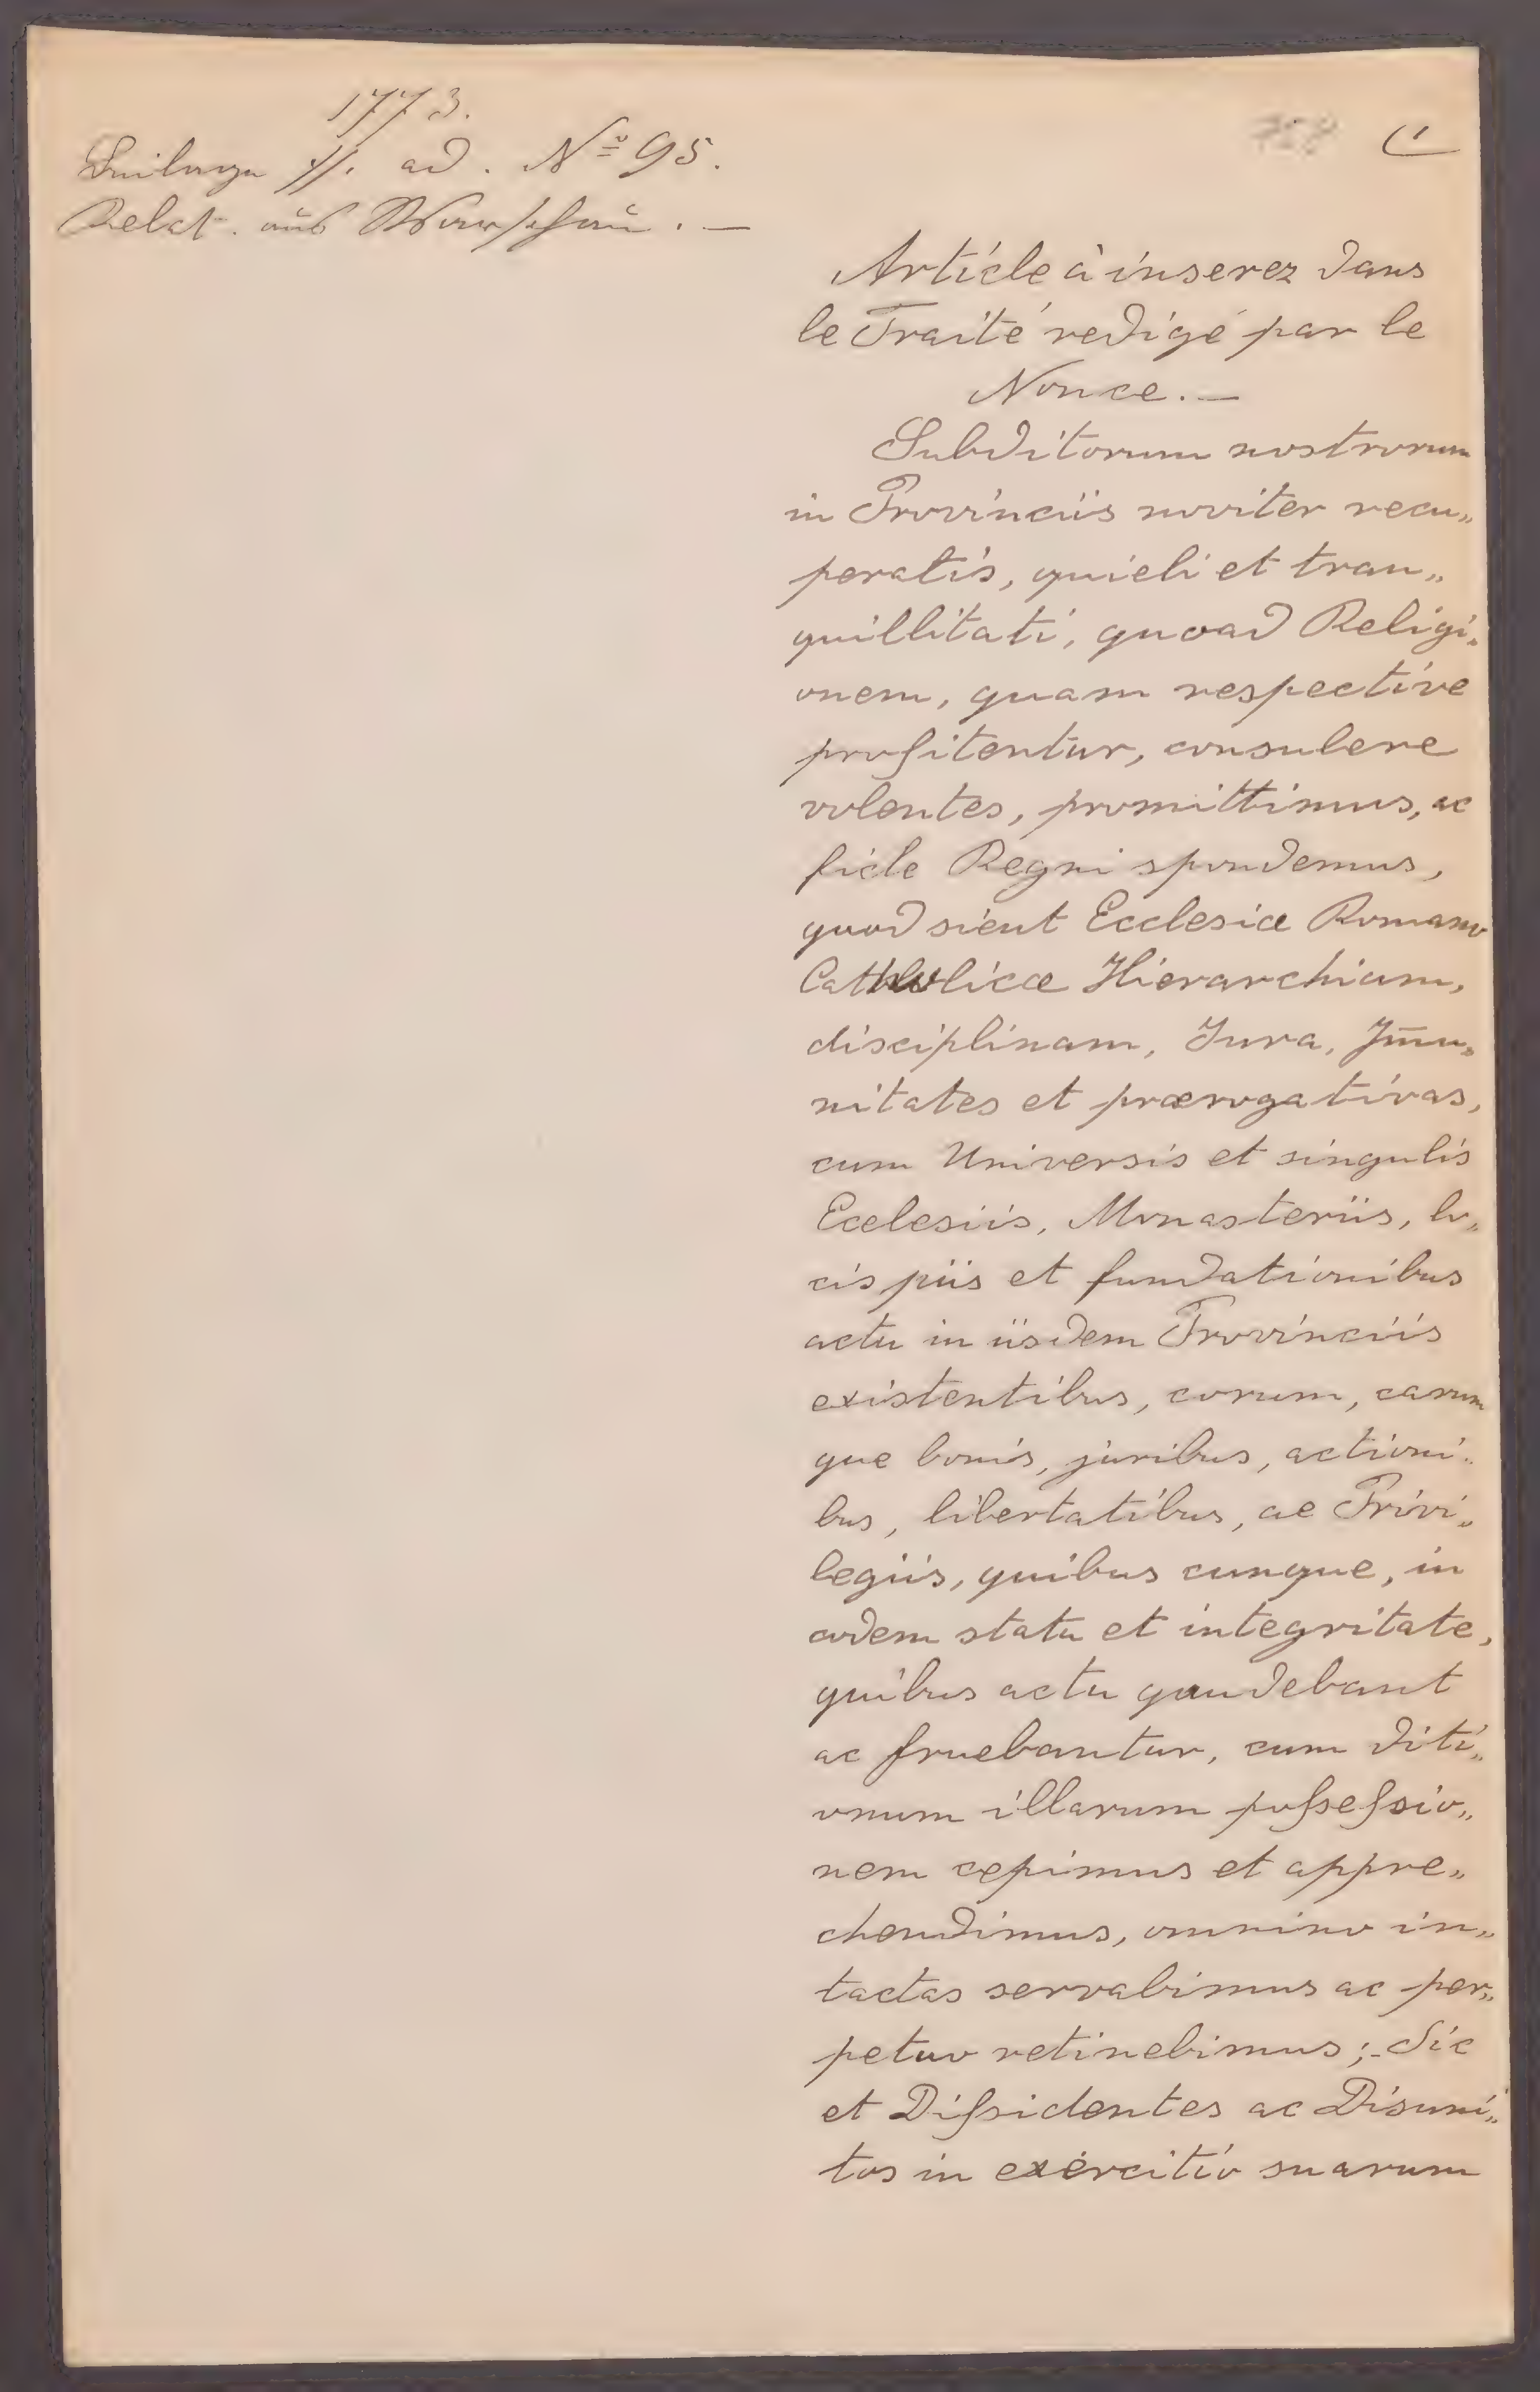 1773.
Beilage //. ad. Nº 95.
Relat. aus Warschau. —
Article à inserez dans
le Traité redigé par le
Nonce. —
Subditorum nostrorum
in Provinciis noviter recu„
peratis, quieti et tran„
quillitati, quoad Religi„
onem, quam respective
profitentur, consulere
volentes, promittimus, ac
fide Regni spondemus,
quod sicut Ecclesiæ Romano
Catholicæ Hierarchiam,
disciplinam, Jura, Jm̄u„
nitates et prærogativas,
cum Universis et singulis
Ecclesiis, Monasteriis, lo„
cis piis et fundationibus
actu in iisdem Provinciis
existentibus, eorum, earum
que bonis, juribus, actioni„
bus, libertatibus, ac Privi„
legiis, quibus cunque, in
eodem statu et integritate,
quibus actu gaudebant
ac fruebantur, cum diti„
onum illarum poſseſsio„
nem cepimus et appre„
hendimus, omnino in„
tactas servabimus ac per„
petuo retinebimus; - Sic
et Diſsidentes ac Disuni„
tos in exercitio suarum